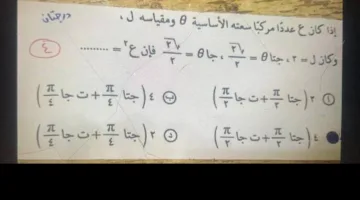 درجتان
إذا كان ع عددًا مركبًا سعته الأساسية θ ومقياسه ل،
وكان ل = ٢، جتا θ = √٢/٢، جا θ = √٢/٢ فإن ع٢ = ......... ٤
أ ٢ (جتا π/٢ + ت جا π/٢) ب ٤ (جتا π/٤ + ت جا π/٤)
٤ (جتا π/٢ + ت جا π/٢) د ٢ (جتا π/٤ + ت جا π/٤)